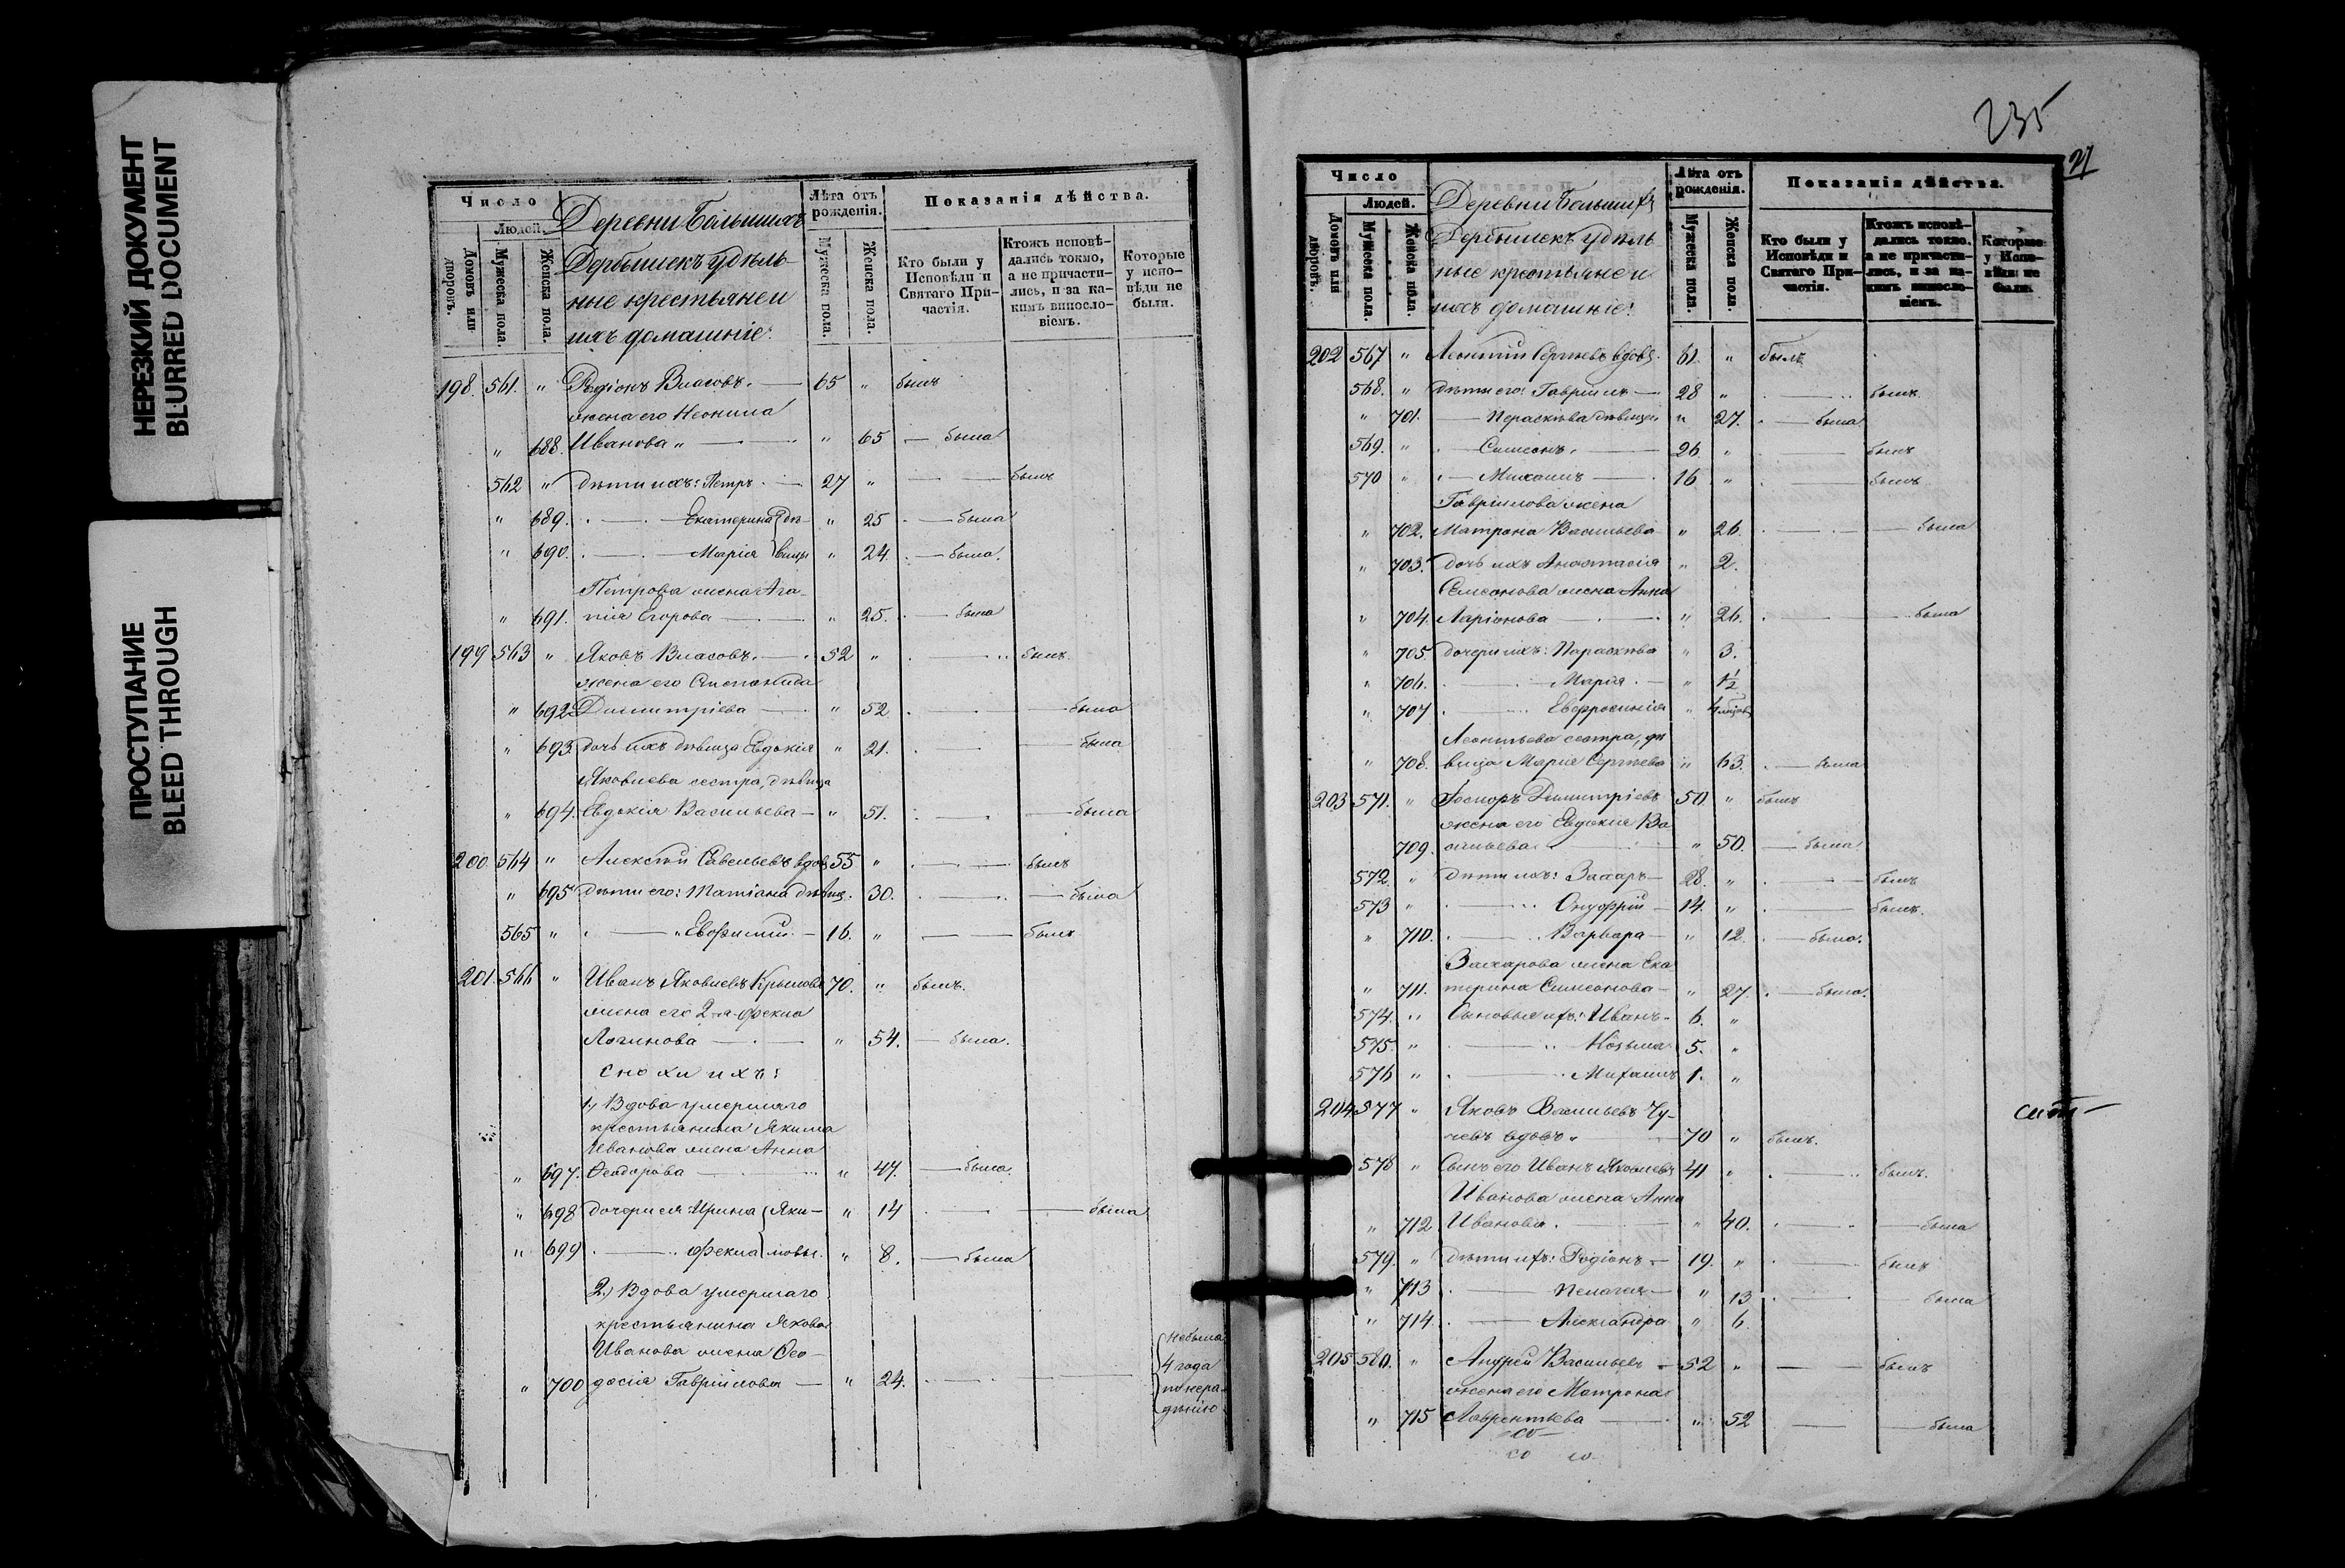 НЕРЕЗКИЙ ДОКУМЕНТ
BLURRED DOCUMENT
ПРОСТУПАНИЕ
BLEED THROUGH
Число
Людей.
Домовъ или дворовъ.
Мужеска пола.
Женска пола.
Деревни Большихъ
Дербышекъ удѣль-
ные крестьяне и
ихъ домашніе:
Лѣта отъ рожденія.
Мужеска пола.
Женска пола.
Показанія дѣйства.
Кто были у Исповѣди и Святаго При-частія.
Ктожъ исповѣ-дались токмо, а не причасти-лись, и за ка-кимъ виносло-віемъ.
Которые у испо-вѣди не были.
198. 561. " Родіонъ Власовъ. — 65 " былъ
жена его Неонила
" 688. Иванова " — " 65 — была
562 " дѣти ихъ: Петръ — 27 " — былъ
" 689. — Екатерина дѣ- " 25 — была
" 690. — Марія вицы " 24 — была.
Петрова жена Ага-
" 691. пія Егорова — " 25. — была
199 563 " Яковъ Власовъ. — 52 " — былъ
жена его Степанида
" 692 Димитріева — " 52 — была
" 693 дочь ихъ дѣвица Евдокія " 21. — была
Яковлева сестра, дѣвица
" 694. Евдокія Васильева — " 51. — была
200 564 " Алексѣй Савельевъ вдовъ 55 " — былъ
" 695 дѣти его: Татіана дѣвиц. 30. — была
565 " — Евфимій — 16. " — былъ
201. 566 " Иванъ Яковлевъ Крыловъ 70. " былъ.
жена его 2-я Фекла
Логинова — " 54. — была.
Снохи ихъ:
1.) Вдова умершаго
крестьянина Якима
Иванова жена Анна
" 697. Ѳеодорова — " 47. — была.
" 698 дочери ея: Ирина Яки- " 14 — была
" 699 — Фекла мовы. " 8. — была
2.) Вдова умершаго
крестьянина Якова
Иванова жена Ѳео-
" 700 досія Гавріилова — " 24. —
не была
4 года
по нера-
дѣнію
235
Число
Людей.
Домовъ или дворовъ.
Мужеска пола.
Женска пола.
Деревни Большихъ
Дербышекъ удѣль
ные крестьяне и
ихъ домашніе:
Лѣта отъ рожденія.
Мужеска пола.
Женска пола.
Показанія дѣйства.
Кто были у Исповѣди и Святаго При-частія.
Ктожъ исповѣ-дались токмо, а не причасти-лись, и за ка-кимъ виносло-віемъ.
Которые у Испо-вѣди не были.
202 567 " Леонтій Сергѣевъ вдовъ. 61. " былъ
568. " дѣти его: Гавріилъ — 28 " — былъ.
" 701. — Параскева дѣвица " 27. — была
569. " — Симеонъ. — 26 " — былъ
570 " — Михаилъ — 16 " — былъ
Гавріилова жена
" 702. Матрона Васильева " 26. — была
" 703. дочь ихъ Анастасія " 2.
Симеонова жена Анна
" 704. Ларіонова — " 26. — была
" 705. дочери ихъ: Параскева " 3.
" 706. — Марія. — " 1/2
" 707 — Евфросинія "
Леонтьева сестра, дѣ
" 708. вица Марія Сергѣева " 63. — была
203 571. " Димитріевъ 50. " былъ
жена его Евдокія Ва
709. сильева — " 50. — была
572. " дѣти ихъ: Захаръ — 28. " — былъ
573 " — Онуфрій — 14. " — былъ.
" 710. — Варвара — " 12. — была.
Захарова жена Ека
" 711. терина Симеонова — " 27. — была.
574. " Сыновья ихъ: Иванъ — 6. "
575. " — Козьма 5. "
576 " — Михаилъ 1. "
204 577 " Яковъ Васильевъ Чу-
чевъ вдовъ " — 70 " былъ.
578 " Сынъ его Иванъ Яковлевъ 41 " — былъ.
Иванова жена Анна
" 712 Иванова. — " 40. — была
579. " дѣти ихъ: Родіонъ — 19. " — былъ
" 713 — Пелагея — " 13 — была
" 714. — Александра " 6.
205 580. " Андрей Васильевъ — 52 " — былъ
жена его Матрона
" 715 Лаврентьева — " 52 — была